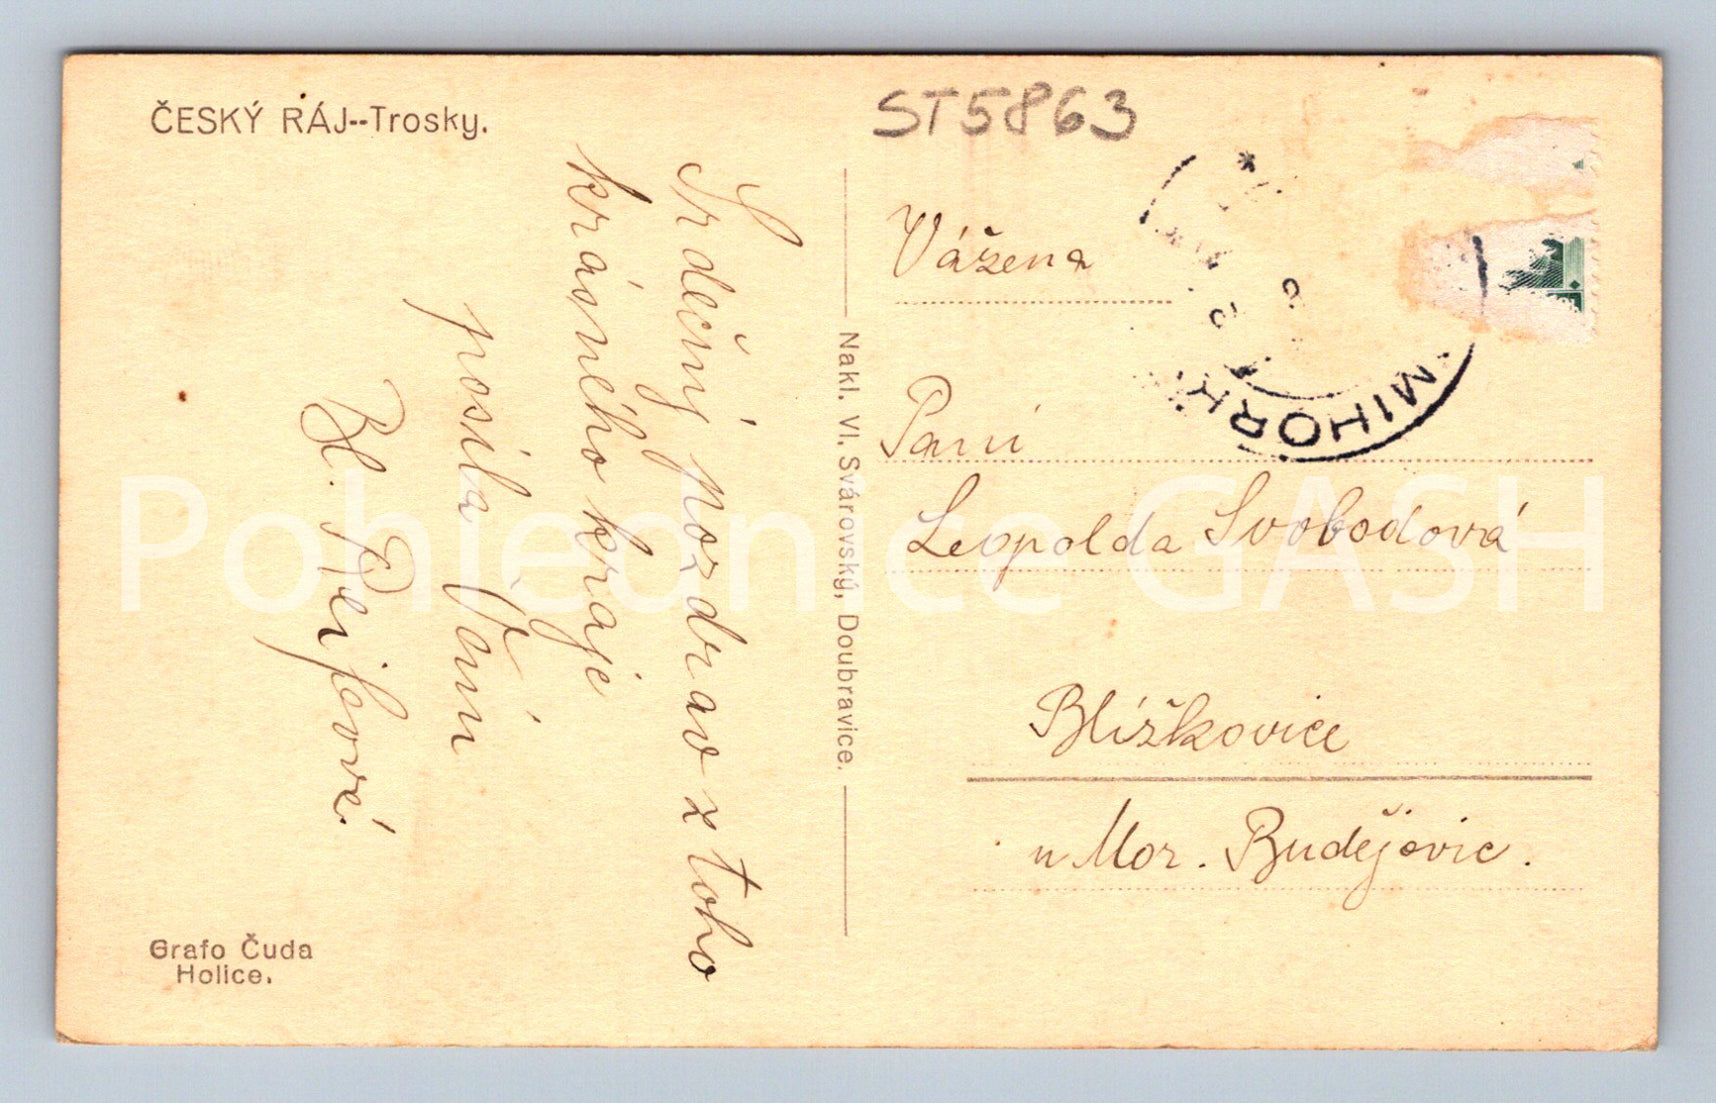 ČESKÝ RÁJ--Trosky.
ST5863
Srdečný pozdrav z toho
krásného kraje
posílá Vám
Vážena
Paní
Leopolda Svobodová
Blížkovice
u Mor. Budějovic.
MIHOŘ
Nakl. Vl. Svárovský, Doubravice.
Grafo Čuda
Holice.
Pohlednice GASH